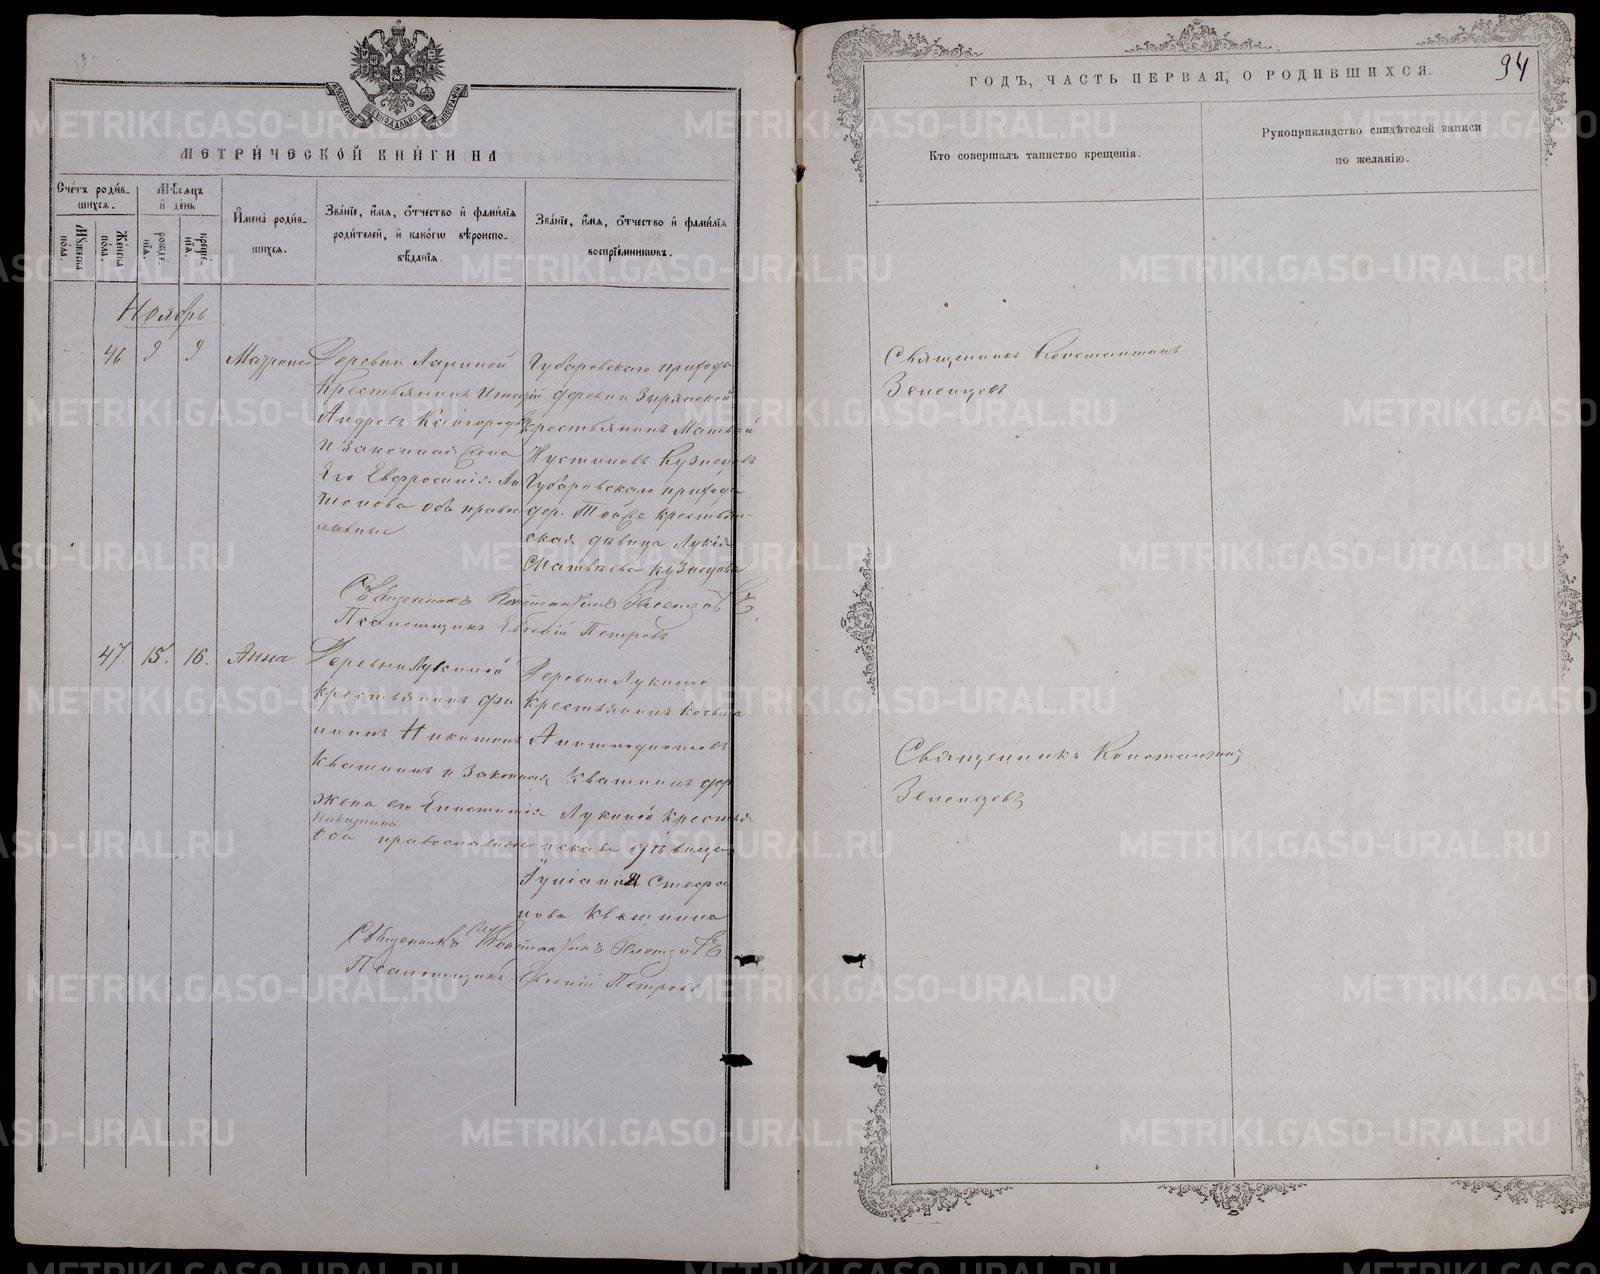 МЕТРИ́ЧЕСКОЙ КНИ́ГИ НА
Сче́тъ роди́в-
шихся.
Мѣ́сяцъ
и де́нь
Му́жеска
по́ла.
Же́нска
по́ла.
рожде́-
нїя.
креще́-
нїя.
И́мена роди́в-
шихся.
Зва́нїе, и́мя, о́тчество и фами́лїя
роди́телей, и како́гѡ вѣроиспо-
вѣ́данїя.
Зва́нїе, и́мя, о́тчество и фами́лїя
воспрїе́мникѡвъ.
Ноябрь
46
9
9
Матрона
Деревни
Крестьянинъ
Андреевъ Кайгородовъ
и законная жена
Его Евфросинія Ан
тонова оба право
славные
Чубаровскаго прихода
деревни Зырянской
крестьянинъ Матвей
Иустиновъ Кузнецовъ
Чубаровскаго прихода
дер. Той же крестьян-
ская дѣвица Лукія
Матвѣева Кузнецова
Священникъ Константинъ Зеленцовъ
Псаломщикъ Евгеній Петровъ
47.
15.
16.
Анна
Деревни Лукиной
крестьянинъ Фи
липпъ Никитинъ
Квашнинъ и законная
жена его Епистимія
Никитина
оба православные
Деревни Лукиной
крестьянинъ Козьма
Квашнинъ дер
Лукиной крестья
нская дѣвица
Іуліанія Стефа
нова Квашнина
Священникъ Константинъ Зеленцовъ
Псаломщикъ Евгеній Петровъ
94
ГОДЪ, ЧАСТЬ ПЕРВАЯ, О РОДИВШИХСЯ.
Кто совершалъ таинство крещенія.
Рукоприкладство свидѣтелей записи
по желанію.
Священникъ Константинъ
Зеленцовъ
Священникъ Константинъ
Зеленцовъ
METRIKI.GASO-URAL.RU